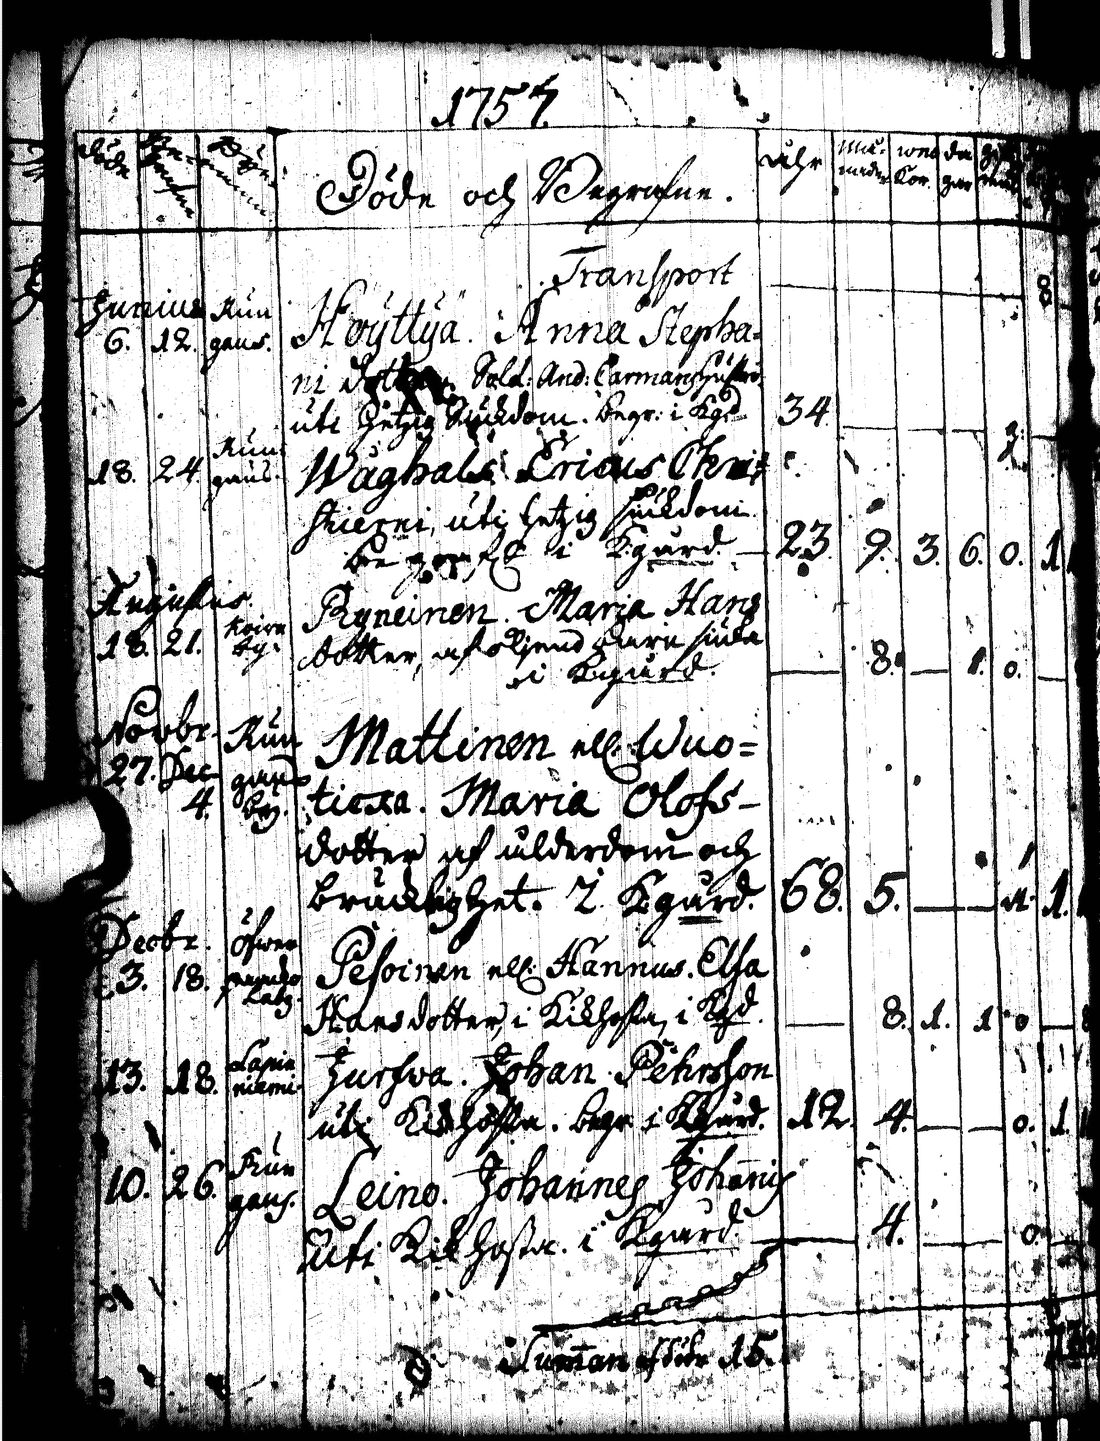 1757.
Döde Be-grafne Byar
Döde och Begrafne. Åhr Må-nader wec kor da gar
Transport 8
Junius Kun
6. 12. gaus. Höyttyä. Anna Stepha=
ni dotter. Sold: And: Carmans hustru
uti hetzig Siukdom. begr: i Kgd 34
Kun
18. 24. gaus. Waghals Ericus Chri=
stierni, uti hetzig siukdom
begrafd i Kgård. 23. 9. 3. 6. 0. 1
Augustus.
18. 21. Koira by. Ryneinen. Maria Hans
dotter, af okjend barn siuka
i Kgård. 8. 1. 0.
Novbr. Kun
27. Dec 4. gaus by. Mattinen ell. Wuo=
tiexa. Maria Olofs-
dotter af ålderdom och
bräcklighet. i Kgård. 68. 5. 1.
Decbr. öfwer
3. 18. Pesoinen ell. Hannus. Elsa
Hansdotter, i Kikhosta, i Kgd. 8. 1. 1. 0
13. 18. Lapin niemi. Jurfwa. Johan Pehrsson
uti Kikhosta. begr. i Kgård. 12. 4. 0. 1.
10. 26. Kun gaus. Leino. Johannes Johannis
uti Kikhosta. i Kgård. 4. 0.
Summan af döde 15.